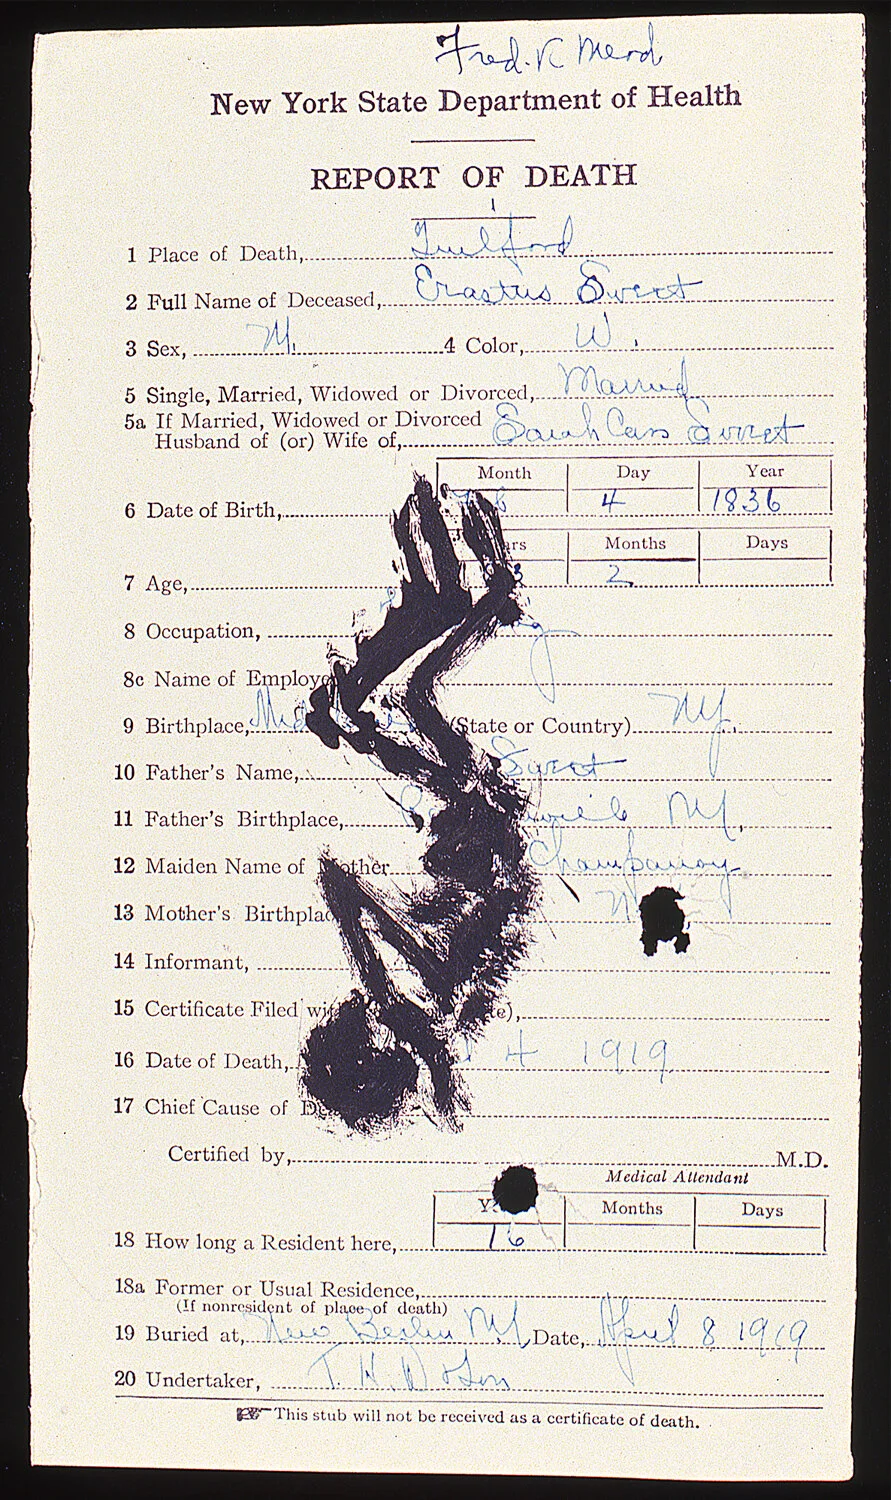 Fred. K Mend
New York State Department of Health
REPORT OF DEATH
1
1 Place of Death, Guilford
2 Full Name of Deceased, Erastus Sweet
3 Sex, M. 4 Color, W.
5 Single, Married, Widowed or Divorced, Married
5a If Married, Widowed or Divorced
Husband of (or) Wife of, Sarah Cass Sweet
Month Day Year
6 Date of Birth, 4 1836
Months Days
7 Age, 2
8 Occupation,
8c Name of Employe
9 Birthplace, (State or Country) NY.
10 Father's Name, Sweet
11 Father's Birthplace, NY,
12 Maiden Name of Mother Champanoy
13 Mother's Birthplac
14 Informant,
15 Certificate Filed wi e),
16 Date of Death, 4 1919
17 Chief Cause of De
Certified by, M.D.
Medical Attendant
Y Months Days
18 How long a Resident here, 16
18a Former or Usual Residence,
(If nonresident of place of death)
19 Buried at, New Berlin NY Date, April 8 1919
20 Undertaker, T. H.
This stub will not be received as a certificate of death.